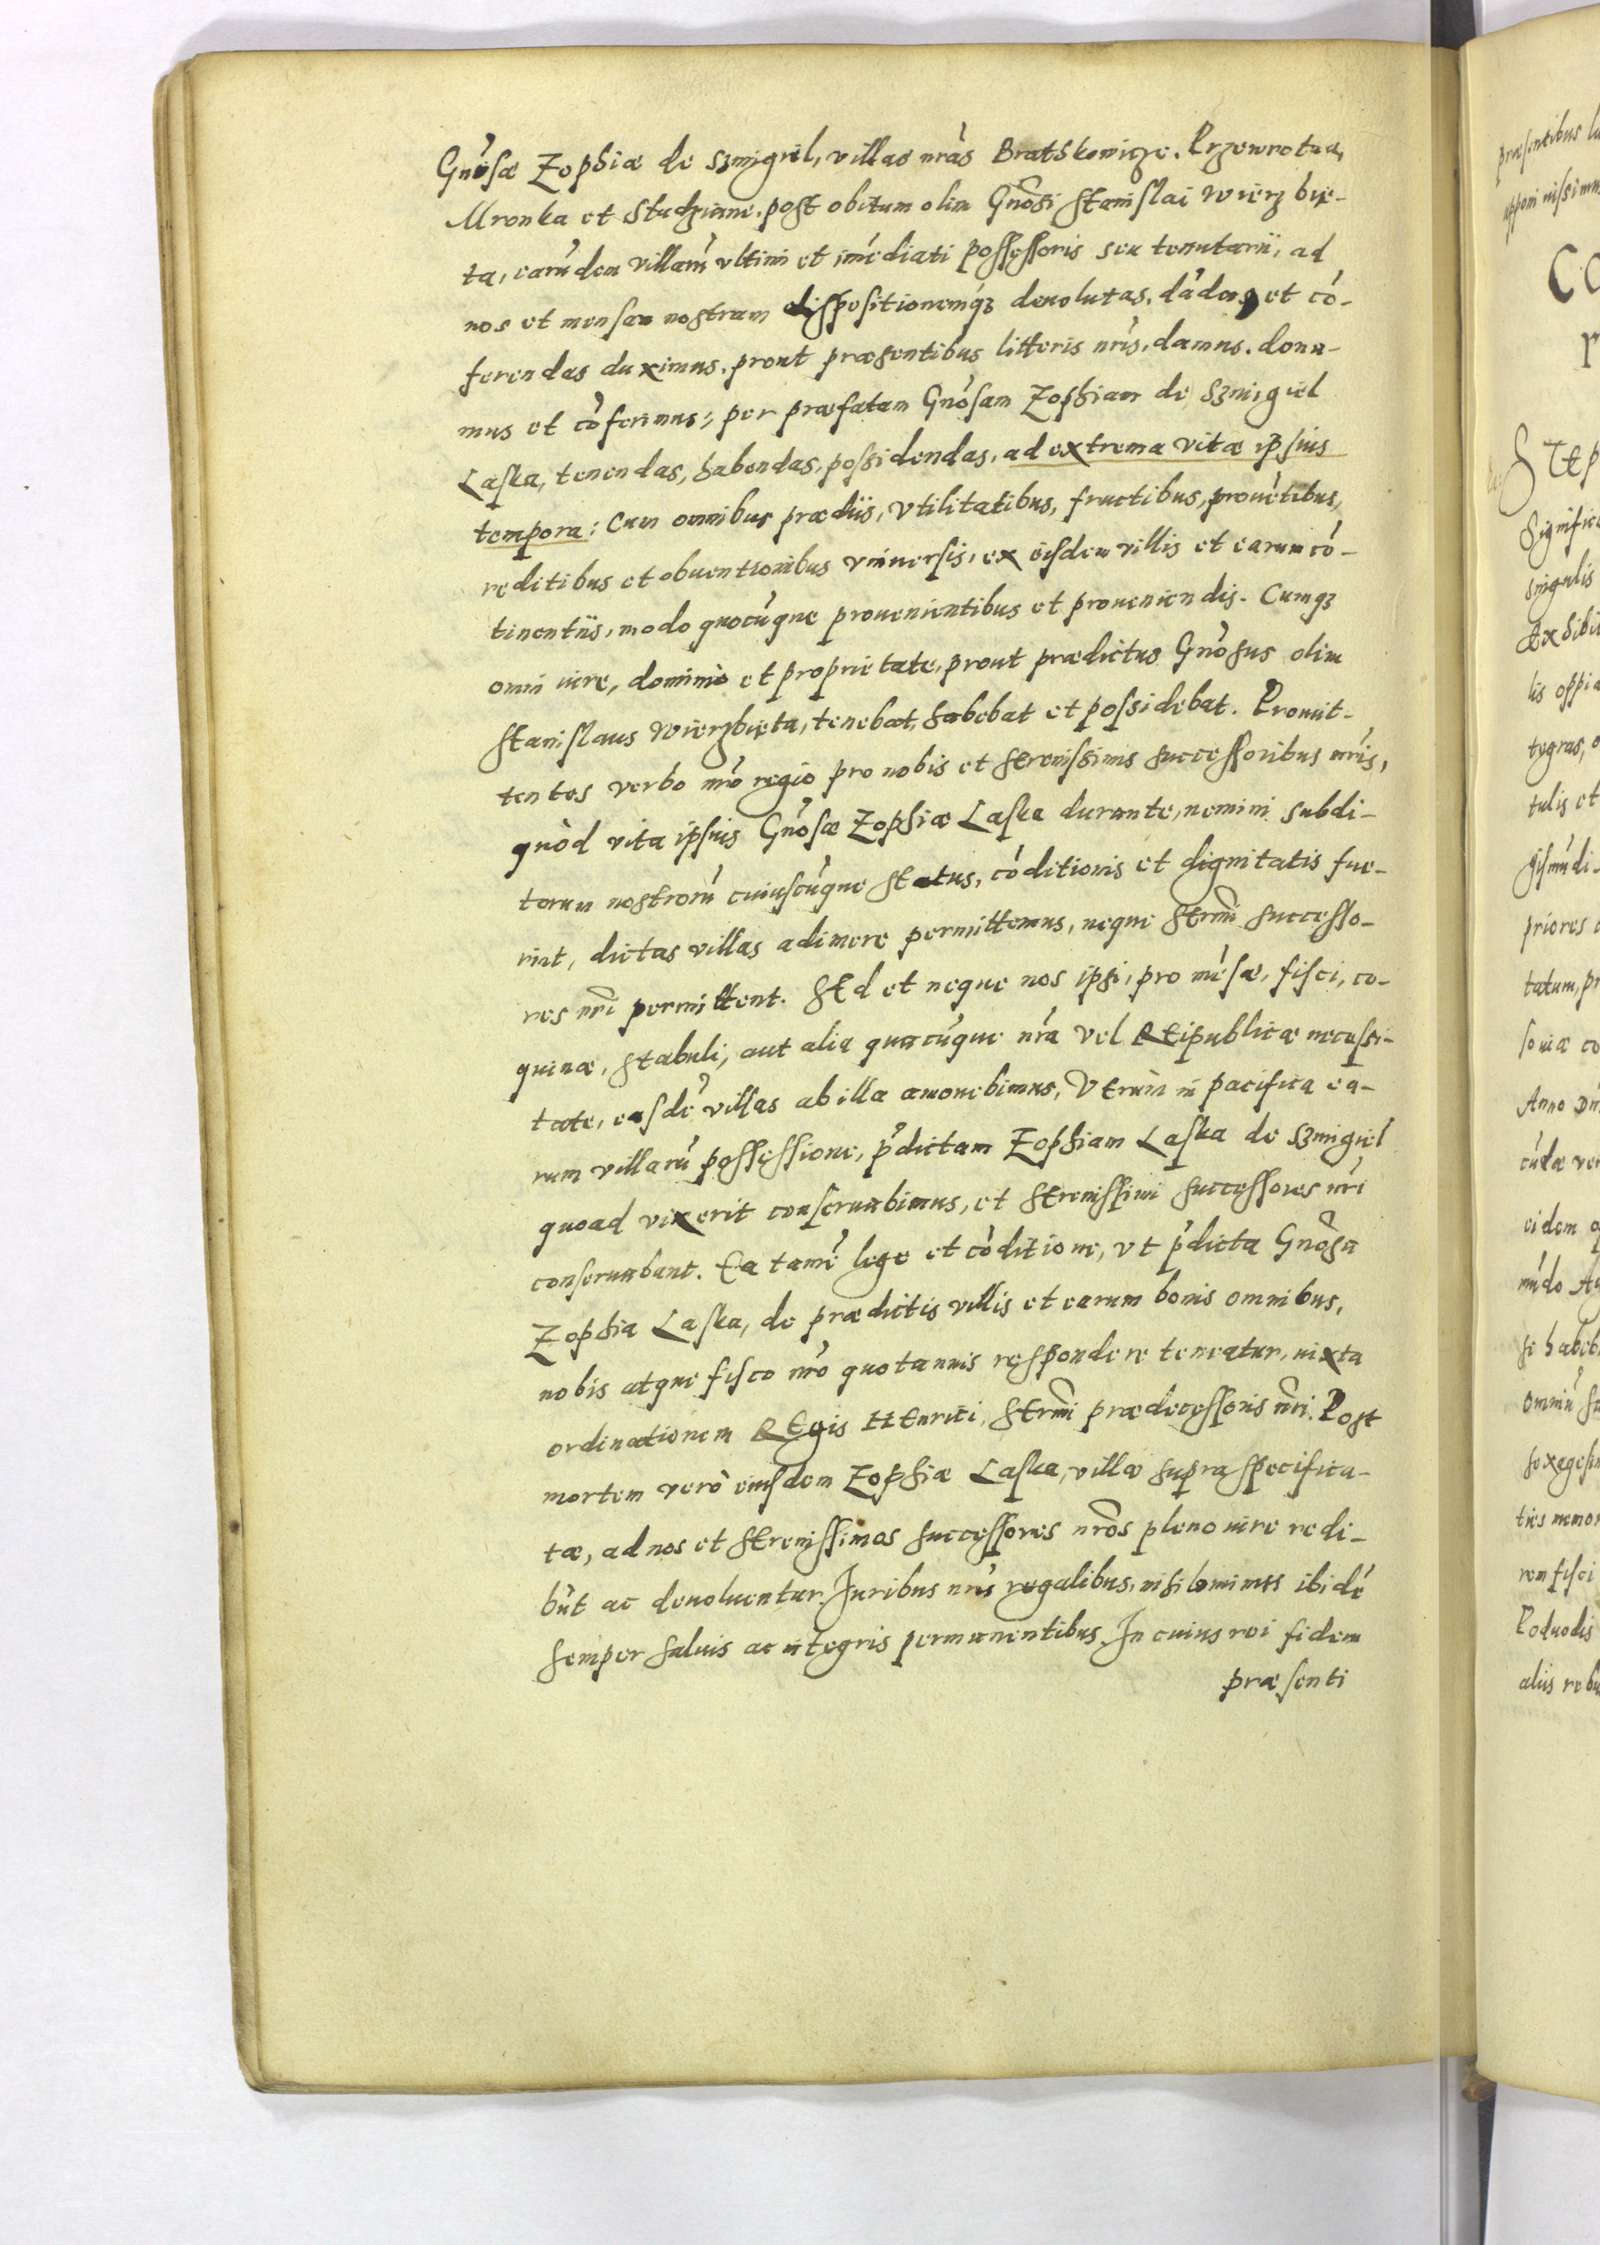 Gnósæ Zophiæ de Szmigiel, villas nrás Bratskowicze. Przewrotna,
Mronka et Studziane. post obitum olim Gnosi Stanislai Wierzbię-
ta, earūdem villarū vltimi et imediati possessoris seu tenutarii, ad
nos et mensam nostram dispositionemq3 deuolutas, dādas et cō-
ferendas duximus. prout præsentibus litteris nrīs, damus. dona-
mus et cōferimus; per præfatam Gnōsam Zophiam de Szmigiel
Laska, tenendas, habendas, possidendas, ad extrema vitæ ipsius
tempora: Cum omnibus prædiis, vtilitatibus, fructibus, prouētibus,
reditibus et obuentionibus vniuersis, ex eisdem villis et earum cō-
tinentiis, modo quocūque prouenientibus et proueniendis. Cumq3
omni iure, dominio et proprietate, prout prædictus Gnōsus olim
Stanislaus Wierzbięta, tenebat, habebat et possidebat. Promit-
tentes verbo nrō regio pro nobis et Serenissimis successoribus nrīs,
quòd vita ipsius Gnōsæ Zophiæ Laska durante, nemini subdi-
torum nostrorū cuiuscūque status, cōditionis et dignitatis fue-
rint, dictas villas adimere permittemus, neque Sermī successo-
res nrī permittent. Sed et neque nos ipsi, pro mēsæ, fisci, co-
quinæ, stabuli, aut alia quacūque nrā vel Reipublicæ necessi-
tate, easdē villas ab illa amouebimus, Verum in pacifica ea-
rum villarū possessione, pdictam Zophiam Laska de Szmigiel
quoad vixerit conseruabimus, et Serenissimi successores nrī
conseruabunt. Ea tamē lege et cōditione, vt pdicta Gnōsa
Zophia Laska, de prædictis villis et earum bonis omnibus,
nobis atque fisco nrō quotannis respondere teneatur, iuxta
ordinationem Regis Henrici, Sermī prædecessoris nrī. Post
mortem verò eiusdem Zophiæ Laska, villæ supra specifica-
tæ, ad nos et Serenissimos successores nrōs pleno iure redi-
būt ac deuoluentur. Juribus nrīs regalibus, nihilominus ibidē
semper saluis ac integris permanentibus. In cuius rei fidem
præsenti